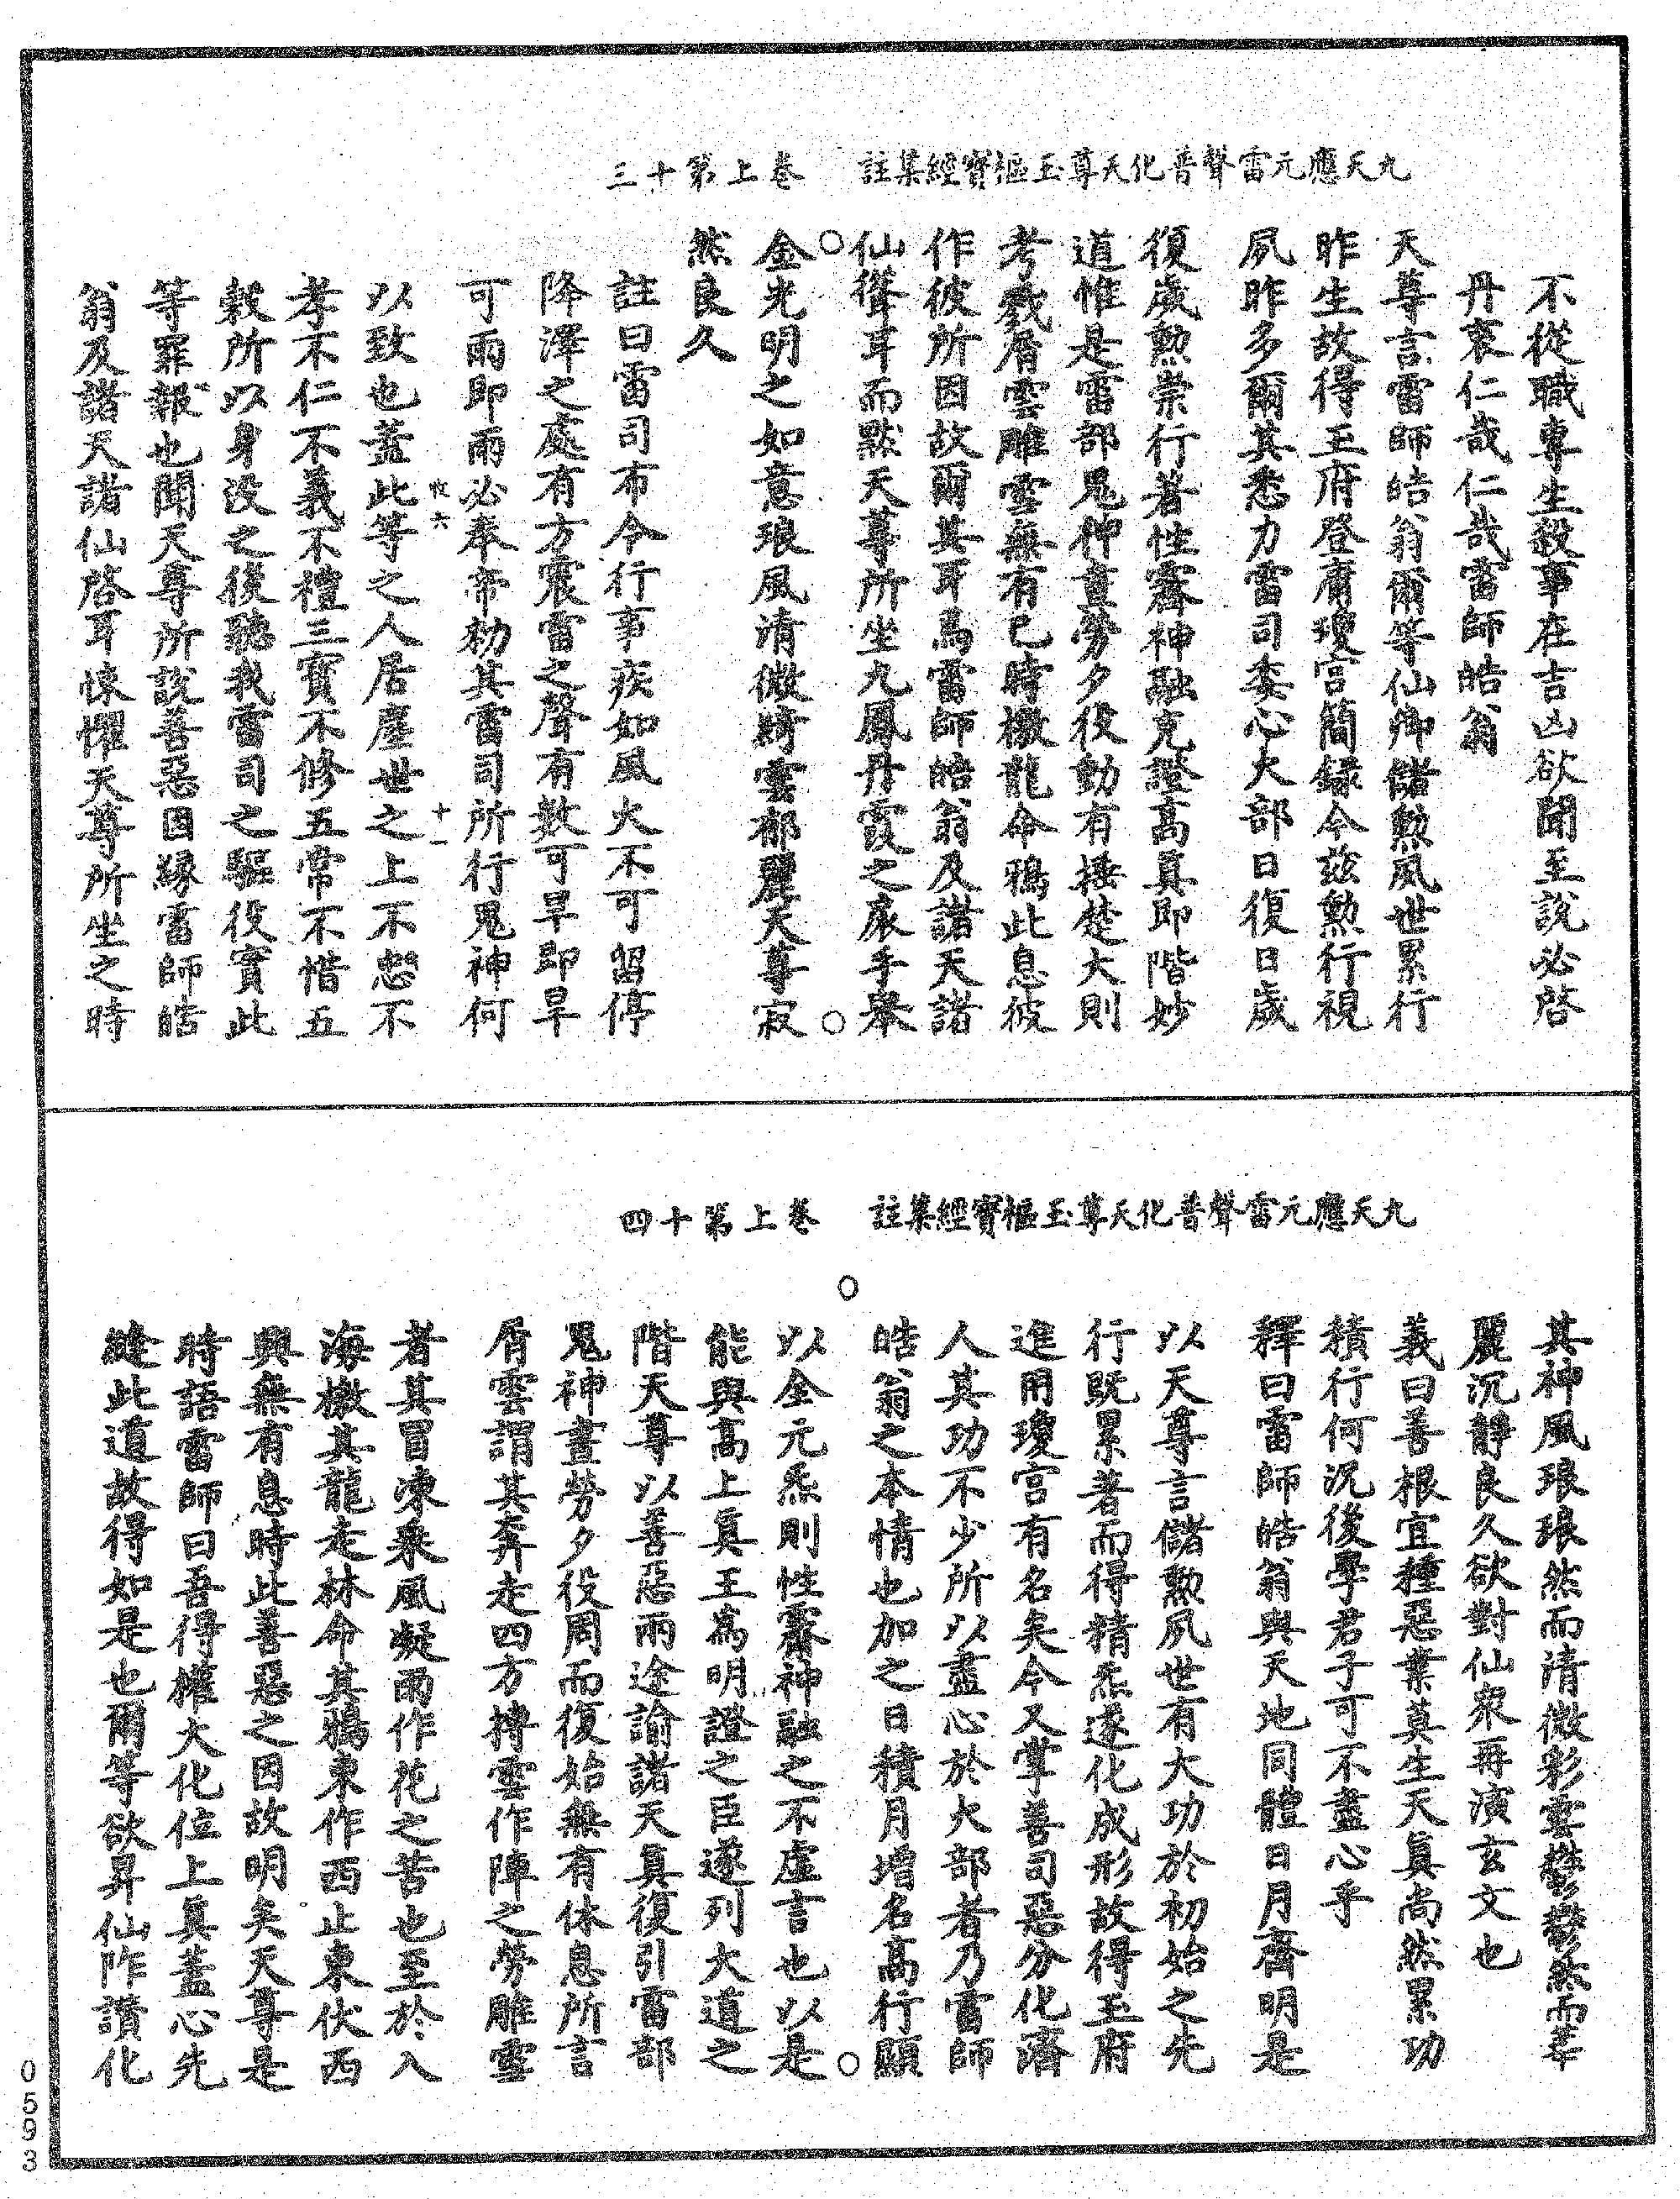 九天應元雷聲普化天尊玉樞寶經集註　卷上第十三
不從職專生殺事在吉凶欲聞至說必啓
丹衷仁哉仁哉雷師皓翁
天尊言雷師皓翁爾等仙卿儲勲夙世累行
昨生故得玉府登庸瓊宫簡録今兹勲行視
夙昨多爾其悉力雷司委心大部日復日歲
復歲勲崇行著性霽神融克證高真即階妙
道惟是雷部鬼神晝勞夕役動有捶楚大則
考戮屑雲雕雪無有已時檄龍命鴉此息彼
作彼所因故爾其耳為雷師皓翁及諸天諸
仙聳耳而默天尊所坐九鳳丹霞之扆手舉
金光明之如意琅風清微綺雲郁麗天尊寂
然良久
註曰雷司布令行事疾如風火不可留停
降澤之處有方震雷之聲有數可旱即旱
可雨即雨必奉帝勑其雷司所行鬼神何
以致也蓋此等之人居塵世之上不忠不
孝不仁不義不禮三寳不修五常不惜五
穀所以身没之後聽我雷司之驅役實此
等罪報也聞天尊所說善惡因緣雷師皓
翁及諸天諸仙啓耳悚懼天尊所坐之時
九天應元雷聲普化天尊玉樞寶經集註　卷上第十四
其神風琅琅然而清微彩雲欝欝然而華
麗沉靜良久欲對仙衆再演玄文也
義曰善根宜種惡業莫生天真尚然累功
積行何況後學君子可不盡心乎
釋曰雷師皓翁與天地同體日月齊明是
以天尊言儲勲夙世有大功於初始之先
行既累著而得精炁遂化成形故得玉府
進用瓊宫有名矣今又掌善司惡分化濟
人其功不少所以盡心於大部者乃雷師
皓翁之本情也加之日積月增名高行顯
以全元炁則性霽神融之不虛言也以是
能與高上真王為明證之臣遂列大道之
階天尊以善惡兩途諭諸天真復引雷部
鬼神晝勞夕役周而復始無有休息所言
屑雲謂其奔走四方摶雲作陣之勞雕雪
者其冒凍乘風凝雨作花之苦也至於入
海檄其龍走林命其鴉東作西止東伏西
興無有息時此善惡之因故明矣天尊是
時語雷師曰吾得權大化位上真蓋心先
縫此道故得如是也爾等欲昇仙阼讚化
0593